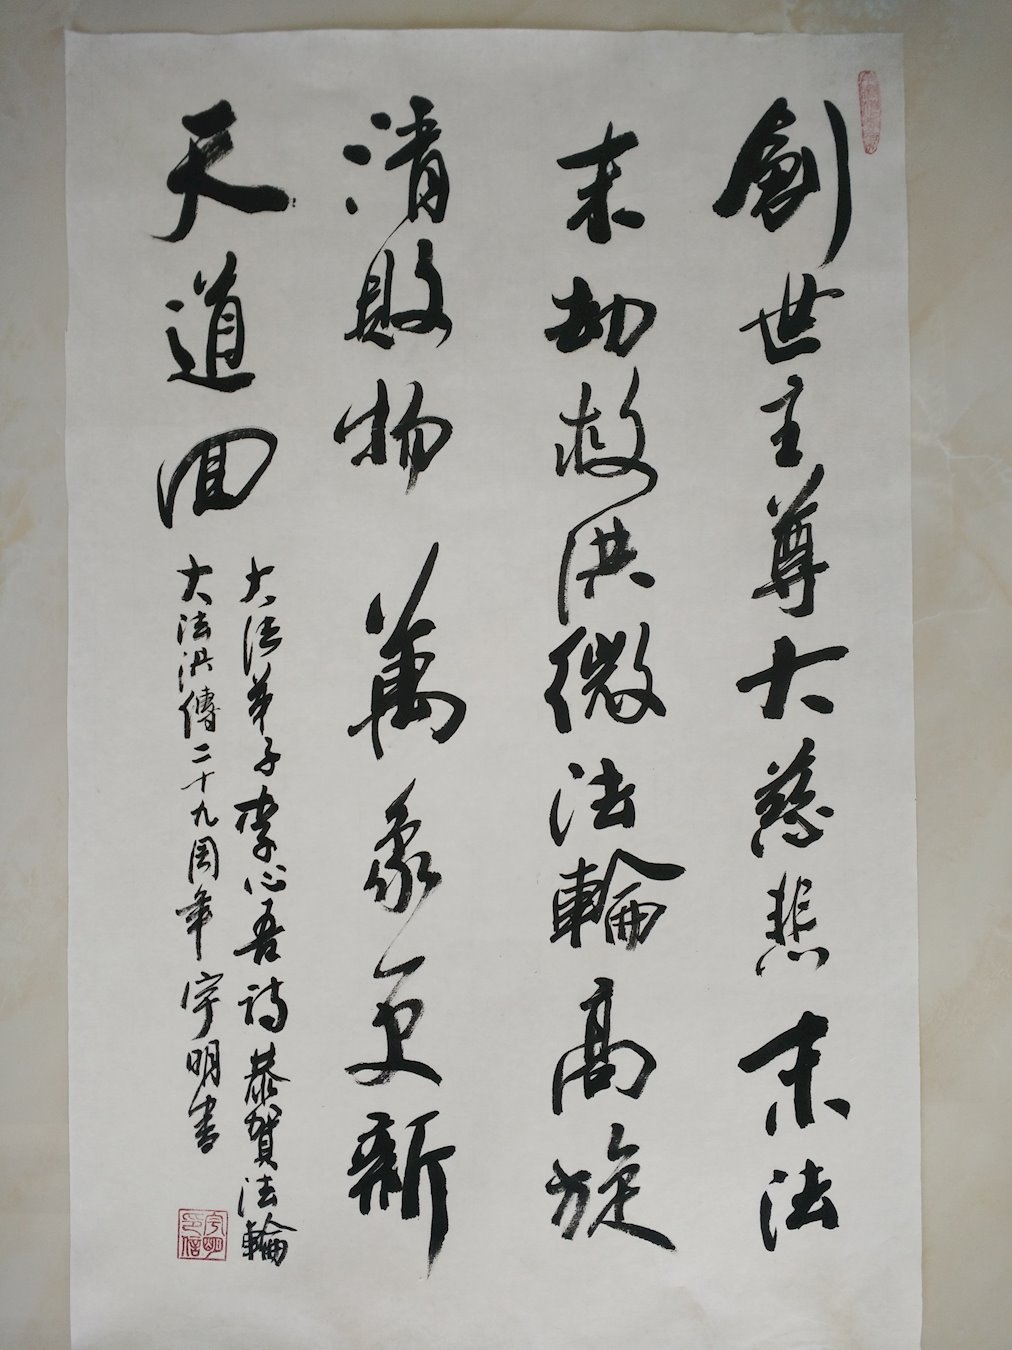 創世主尊大慈悲末法
末劫救洪微法輪高旋
清敗物萬象更新
天道回
大法弟子李心吾詩恭賀法輪
大法洪傳二十九周年宇明書
宇明印信